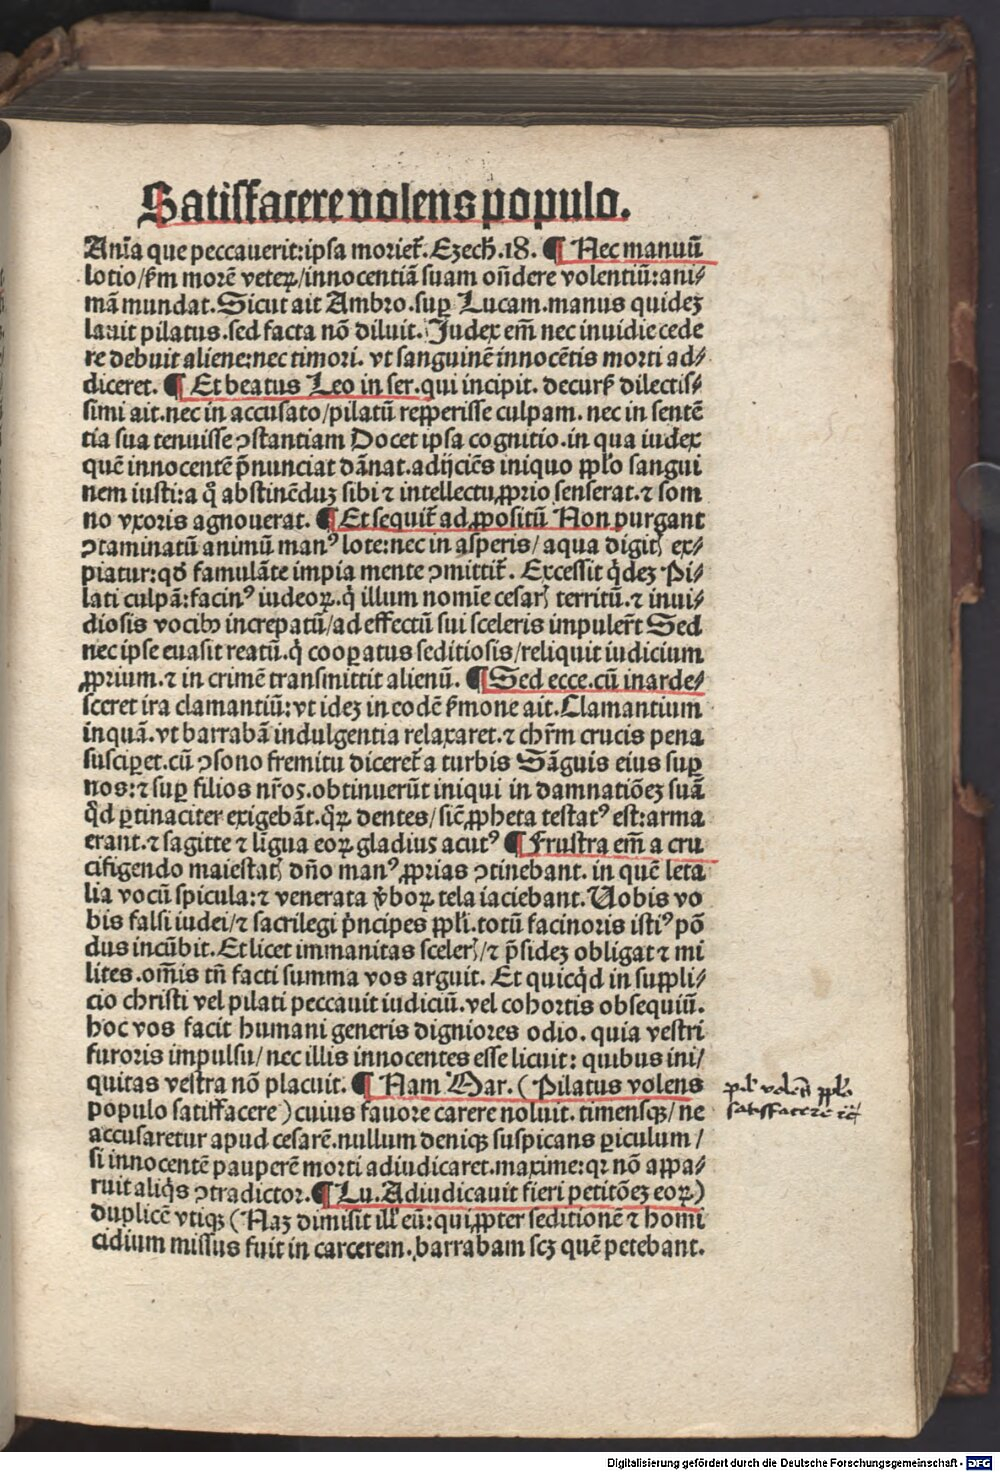 Satisfacere volens populo.
Anĩa que peccauerit: ipsa morieť. Ezecħ. 18. ¶ Nec manuũ
lotio / ẜm morẽ veteꝝ / innocentiã suam oñdere volentiũ: ani⸗
mã mundat. Sicut ait Ambro. suꝑ Lucam. manus quideꝫ
lauit pilatus. sed facta nõ diluit. Judex em̃ nec inuidie cede
re debuit aliene: nec timori. vt sanguinẽ innocẽtis morti ad⸗
diceret. ¶ Et beatus Leo in ser. qui incipit. decurẜ dilectis⸗
simi ait. nec in accusato / pilatũ reꝑperisse culpam. nec in sentẽ
tia sua tenuisse ꝯstantiam Docet ipsa cognitio. in qua iudex
quẽ innocentẽ p̃nunciat dãnat. adijciẽs iniquo ꝓpľo sangui
nem iusti: a q̃ abstinẽduꝫ sibi ⁊ intellectu ꝓprio senserat. ⁊ som
no vxoris agnouerat. ¶ Et sequiť ad ꝓpositũ Non purgant
ꝯtaminatũ animũ manꝰ lote: nec in asperis / aqua digitꝭ ex⸗
piatur: qď famulãte impia mente ꝯmittiť. Excessit q̇deꝫ Pi⸗
lati culpã: facinꝰ iudeoꝝ. q̇ illum nomĩe cesarꝭ territũ. ⁊ inui⸗
diosis vocibꝰ increpatũ / ad effectũ sui sceleris impuler̃t Sed
nec ipse euasit reatũ. q̇ cooꝑatus seditiosis / reliquit iudicium
ꝓprium. ⁊ in crimẽ transmittit alienũ. ¶ Sed ecce. cũ inarde⸗
sceret ira clamantiũ: vt ideꝫ in eodẽ ẜmone ait. Clamantium
inquã. vt barrabã indulgentia relaxaret. ⁊ chr̃m crucis pena
susciꝑet. cũ ꝯsono fremitu diceret̃ a turbis Sãguis eius suꝑ
nos: ⁊ suꝑ filios nr̃os. obtinuerũt iniqui in damnatiõeꝫ suã
q̇d ꝑtinaciter exigebãt. q̃ꝝ dentes / sic̃ ꝓpheta testatꝰ est: arma
erant. ⁊ sagitte ⁊ lĩgua eoꝝ gladius acutꝰ ¶ Frustra em̃ a cru
cifigendo maiestatꝭ dño manꝰ ꝓprias ꝯtinebant. in quẽ leta
lia vocũ spicula: ⁊ venerata v̾boꝝ tela iaciebant. Uobis vo
bis falsi iudei / ⁊ sacrilegi pͥncipes ꝓpľi. totũ facinoris istiꝰ põ
dus incũbit. Et licet immanitas scelerꝭ / ⁊ p̃sideꝫ obligat ⁊ mi
lites. om̃is tñ facti summa vos arguit. Et quicq̇d in suppli⸗
cio christi vel pilati peccauit iudiciũ. vel cohortis obsequiũ.
hoc vos facit humani generis digniores odio. quia vestri
furoris impulsu / nec illis innocentes esse licuit: quibus ini⸗
quitas vestra nõ placuit. ¶ Nam Mar. ( Pilatus volens
populo satisfacere ) cuius fauore carere noluit. timensqꝫ / ne
accusaretur apud cesarẽ. nullum deniqꝫ suspicans ꝑiculum /
si innocentẽ pauperẽ morti adiudicaret. maxime: qꝛ nõ appa⸗
ruit aliq̇s ꝯtradictor. ¶ Lu. Adiudicauit fieri petitõeꝫ eoꝝ )
duplicẽ vtiqꝫ ( Naꝫ dimisit ill' eũ: qui ꝓpter seditionẽ ⁊ homi
cidium missus fuit in carcerem. barrabam scꝫ quẽ petebant.
satisfacere
Digitalisierung gefördert durch die Deutsche Forschungsgemeinschaft - DFG